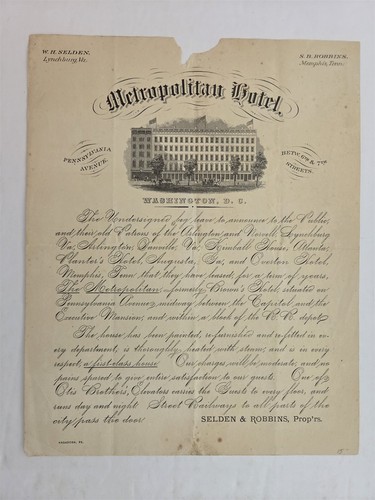 W. H. SELDEN,
Lynchburg, Va.
S. B. ROBBINS,
Memphis, Tenn.
Metropolitan Hotel,
PENNSYLVANIA
AVENUE.
BETW 6TH & 7TH
STREETS.
WASHINGTON, D. C.
The Undersigned beg leave to announce to the Public
and their old Patrons of the Arlington and Norvell, Lynchburg
Va, Arlington, Danville, Va, Kimball House, Atlanta,
Hotel, Augusta, Ga, and Overton Hotel,
Memphis, Tenn that they have leased, for a term of years,
The Metropolitan, formerly Brown's Hotel, situated on
Pennsylvania Avenue midway between the Capitol and the
Executive Mansion, and within a block of the R. R. depot.
The house has been painted, refurnished and refitted in ev-
ery department, is thoroughly heated with steam, and is in very
respect, a first-class house. Our charges will be moderate and no
pains spared to give entire satisfaction to our guests. One of
Otis Brothers', Elevators carries the Guests to every floor, and
runs day and night Street Railways to all parts of the
city pass the door
SELDEN & ROBBINS, Prop'rs.